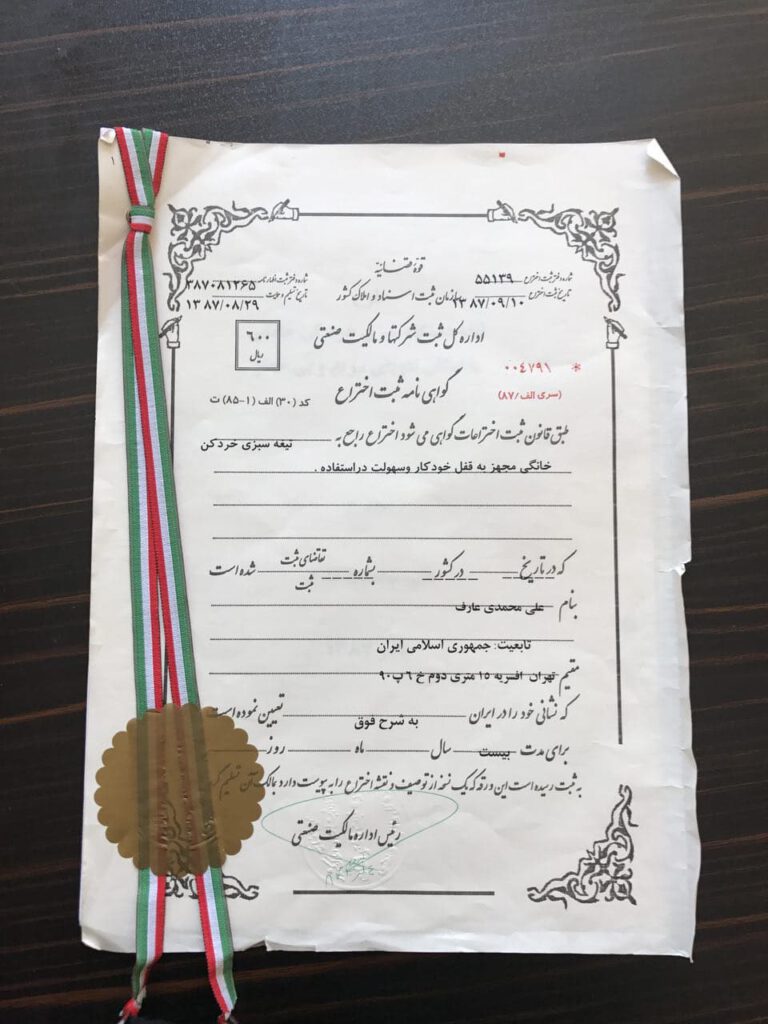 قوهٔ قضائیه
شماره دفتر ثبت اختراع ۵۵۱۳۹
شماره دفتر ثبت اظهارنامه ۳۸۷۰۸۱۲۶۵
سازمان ثبت اسناد و املاک کشور
تاریخ ثبت اختراع ۱۳۸۷/۰۹/۱۰
تاریخ تسلیم ۱۳۸۷/۰۸/۲۹
اداره کل ثبت شرکتها و مالکیت صنعتی
۶۰۰
ریال
* ۰۰۴۷۹۱
(سری الف/۸۷)
گواهی نامه ثبت اختراع
کد (۳۰) الف (۱-۸۵) ت
طبق قانون ثبت اختراعات گواهی می شود اختراع راجع به تیغه سبزی خردکن
خانگی مجهز به قفل خودکار وسهولت دراستفاده .
که در تاریخ در کشور بشماره تقاضای ثبت شده است
ثبت
بنام علی محمدی عارف
تابعیت: جمهوری اسلامی ایران
مقیم تهران افسریه ۱۵ متری دوم خ ۶ پ۹۰
که نشانی خود را در ایران به شرح فوق تعیین نموده است
برای مدت بیست سال ماه روز
به ثبت رسیده است این ورقه که یک نسخه از توصیف و نقشه اختراع را به پیوست دارد بمالک آن تسلیم
رئیس اداره مالکیت صنعتی